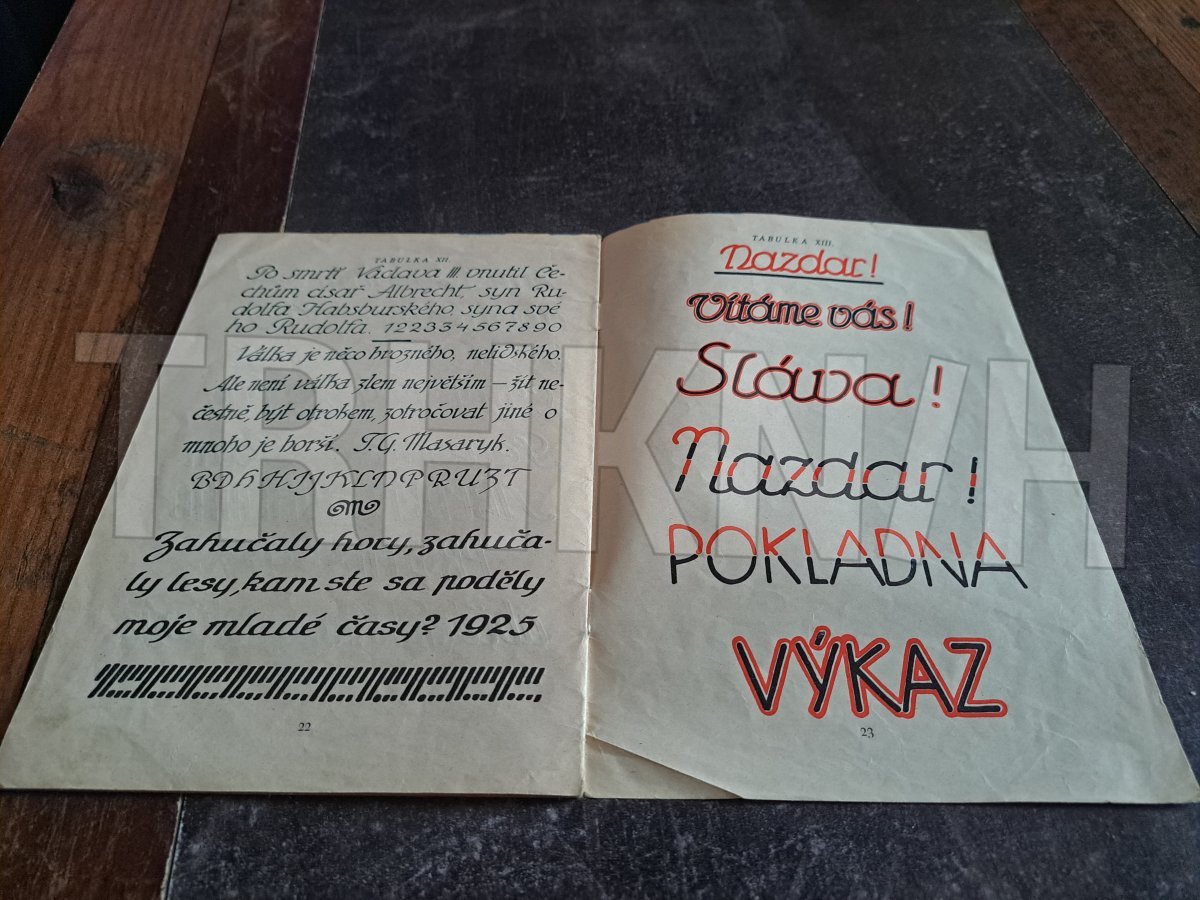 TABULKA XII.
Po smrti Václava III. vnutil Če-
chům císař Albrecht, syn Ru-
dolfa Habsburského, syna své-
ho Rudolfa. 1 2 2 3 3 4 5 6 7 8 9 0
Válka je něco hrozného, nelidského.
Ale není válka zlem největším — žít ne-
čestně, být otrokem, zotročovat jiné o
mnoho je horší. T. G. Masaryk.
BDhHIJKLDPRUZT
Zahučaly hory, zahuča-
ly lesy, kam ste sa poděly
moje mladé časy? 1925
22
TABULKA XIII.
Nazdar!
Vítáme vás!
Sláva!
Nazdar!
POKLADNA
VÝKAZ
23
TRHKNIH